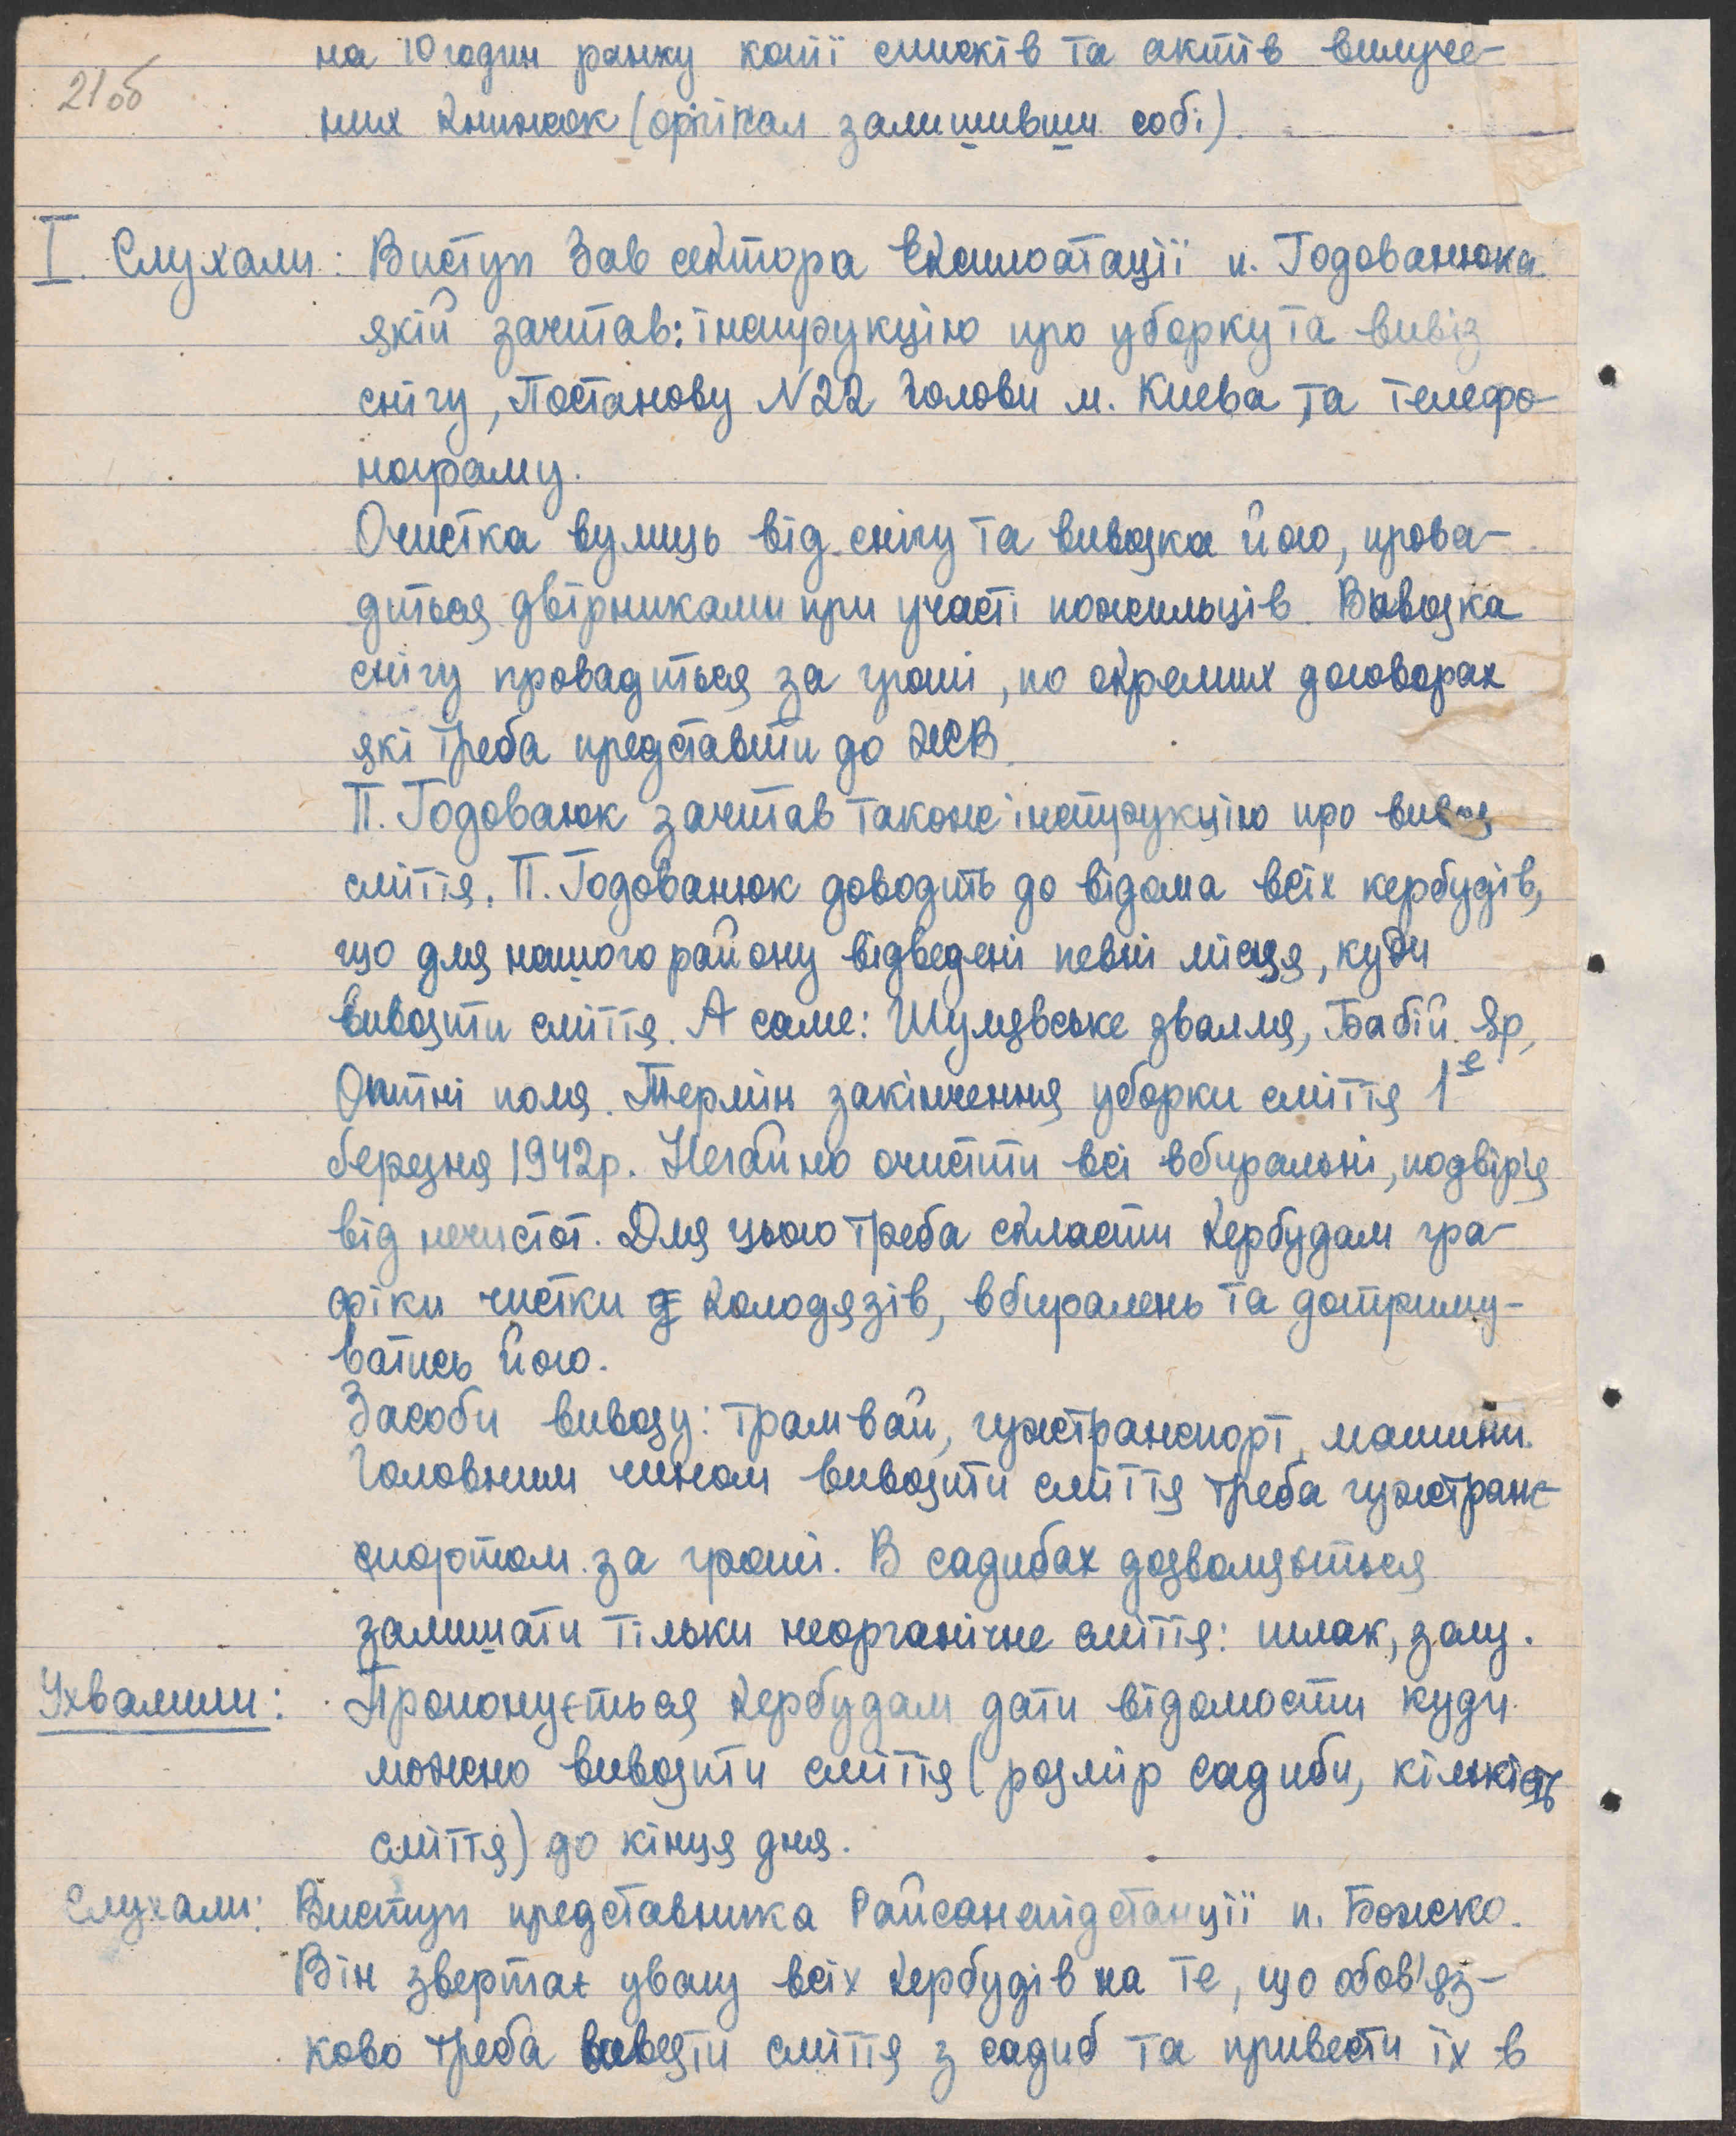 21об
на 10 годин ранку копії списків та актів вилуче-
них книжок (орігінал залишивши собі).
I. Слухали: Виступ Зав сектора Експлоатації п. Годованюка
якій зачитав: інструкцію про уборку та вивіз
снігу, Постанову N22 Голови м. Києва та телефо-
нограму.
Очистка вулиць від снігу та вивозка його, прова-
диться двірниками при участі пожильців. Вивозка
снігу провадиться за гроші, по окремих договорах
які треба представити до ЖСВ.
П. Годованюк зачитав також інструкцію про вивоз
сміття. П. Годованюк доводить до відома всіх кербудів,
що для нашого району відведені певні місця, куди
вивозити сміття. А саме: Шулявське звалля, Бабій Яр,
Опитні поля. Термін закінчення уборки сміття 1е
березня 1942р. Негайно очистити всі вбиральні, подвір'я
від нечистот. Для цього треба скласти кербудам гра-
фіки чистки колодязів, вбиралень та дотриму-
ватись його.
Засоби вивозу: трамвай, гужтранспорт, машини.
Головним чином вивозити сміття треба гужтранс-
портом за гроші. В садибах дозволяється
залишати тільки неорганічне сміття: шлак, золу.
Ухвалили: Пропонується кербудам дати відомости куди
можно вивозити сміття (розмір садиби, кількість
сміття) до кінця дня.
Слухали: Виступ представника Райсанепідстанції п. Божко.
Він звертає увагу всіх кербудів на те, що обов'яз-
ково треба вивезти сміття з садиб та привести їх в